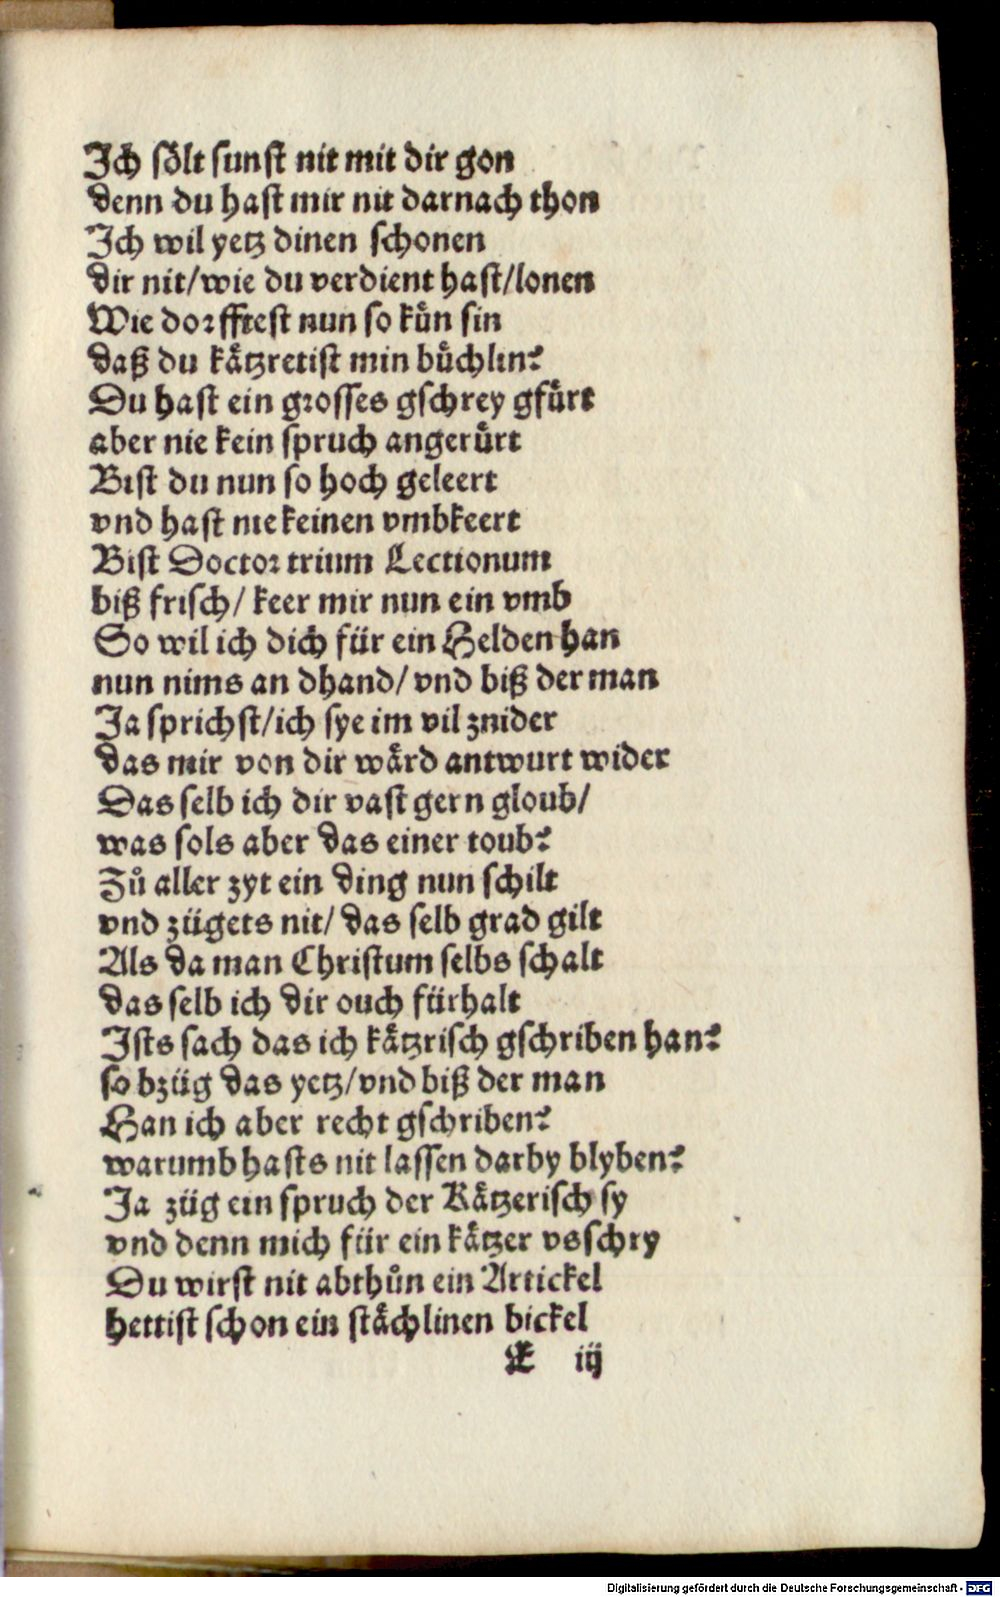 Ich sölt sunst nit mit dir gon
denn du hast mir nit darnach thon
Ich wil yetz dinen schonen
dir nit/wie du verdient hast/lonen
Wie dorfftest nun so kůn sin
daß du kåtzretist min bůchlin?
Du hast ein grosses gschrey gfůrt
aber nie kein spruch angerůrt
Bist du nun so hoch geleert
vnd hast nie keinen vmbkeert
Bist Doctor trium Lectionum
biß frisch/ keer mir nun ein vmb
So wil ich dich für ein Helden han
nun nims an dhand/ vnd biß der man
Ja sprichst/ich sye im vil znider
das mir von dir wård antwurt wider
Das selb ich dir vast gern gloub/
was sols aber das einer toub?
Zů aller zyt ein ding nun schilt
vnd zügets nit/ das selb grad gilt
Als da man Christum selbs schalt
das selb ich dir ouch fürhalt
Ists sach das ich kåtzrisch gschriben han?
so bzüg das yetz/vnd biß der man
Han ich aber recht gschriben?
warumb hasts nit lassen darby blyben?
Ja züg ein spruch der Kåtzerisch sy
vnd denn mich für ein kåtzer vsschry
Du wirst nit abthůn ein Artickel
hettist schon ein ståchlinen bickel
K iij
Digitalisierung gefördert durch die Deutsche Forschungsgemeinschaft - DFG